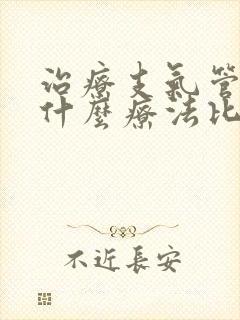 治療支氣管
什麼療法比
不近長安